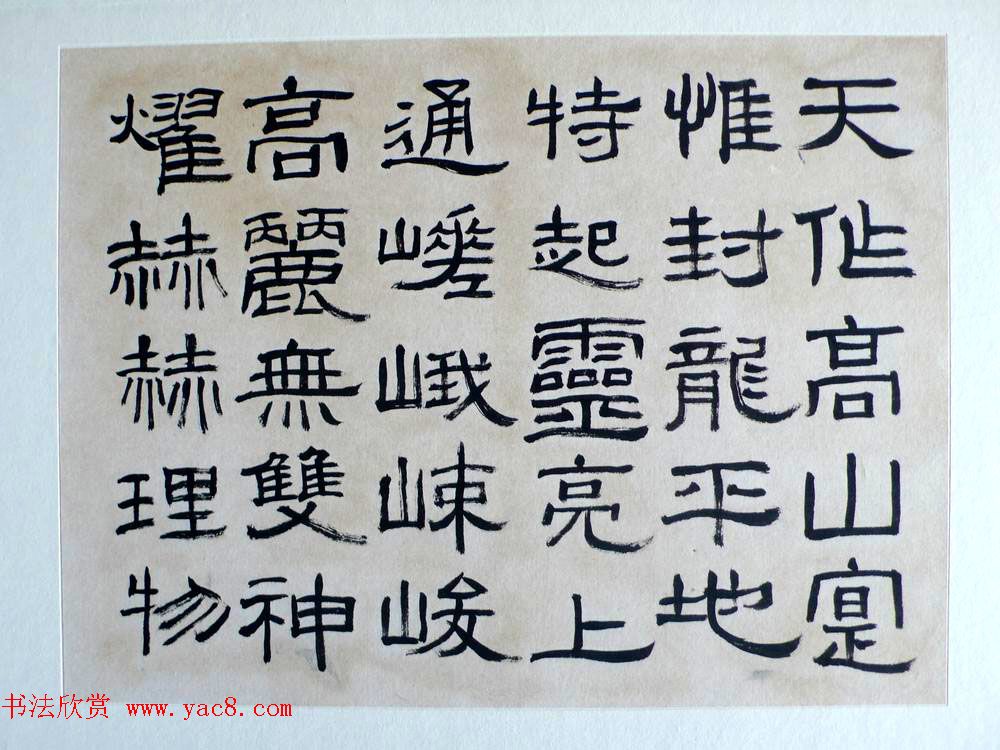 天作高山寔
惟封龍平地
特起靈亮上
通嵯峨崠峻
高麗無雙神
燿赫赫理物
书法欣赏 www.yac8.com